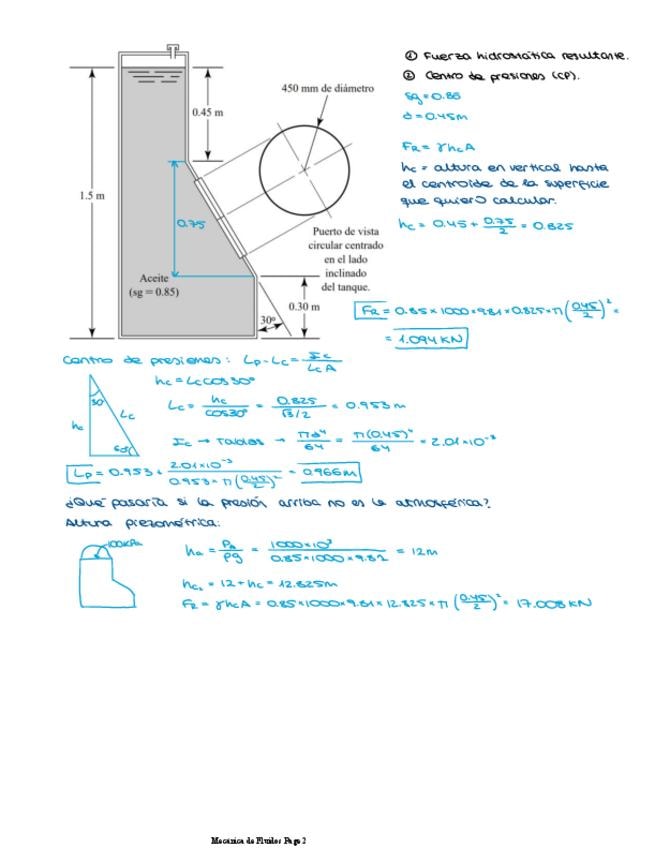 ① Fuerza hidrostática resultante.
② Centro de presiones (CP).
sg = 0.86
d = 0.45m
FR = γhcA
hc = altura en vertical hasta
el centroide de la superficie
que quiero calcular.
hc = 0.45 + 0.75/2 = 0.825
450 mm de diámetro
0.45 m
1.5 m
0.75
Puerto de vista
circular centrado
en el lado
inclinado
del tanque.
Aceite
(sg = 0.85)
0.30 m
30°
FR = 0.85×1000×9.81×0.825×π(0.45/2)² =
= 1.094 KN
Centro de presiones: Lp-Lc = Ic/LcA
hc = Lccos30°
30°
Lc
hc
60°
Lc = hc/cos30° = 0.825/√3/2 = 0.953m
Ic → Tablas → πd⁴/64 = π(0.45)⁴/64 = 2.01×10⁻³
Lp = 0.953 + 2.01×10⁻³/0.953×π(0.45/2)² = 0.966m
¿Qué pasaría si la presión arriba no es la atmosférica?
Altura piezométrica:
100KPa
ha = Pa/ρg = 1000×10³/0.85×1000×9.81 = 12m
hc₂ = 12 + hc = 12.825m
FR = γhcA = 0.85×1000×9.81×12.825×π(0.45/2)² = 17.008 KN
Mecánica de Fluidos Page 2